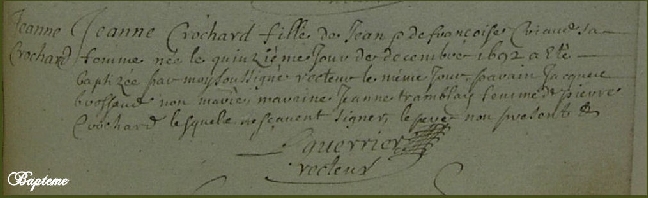 Jeanne Jeanne Crochard fille de Jean & de françoise Criaud sa
Crochard femme née le quinzieme jour de decembre 1692 a ete
baptizée par moy soussigné recteur le même jour parain Jacques
brossaud non marié maraine Jeanne tramblais femme de pierre
Crochard lesquels ne sçavent signer, le pere non present &
Guerrier
recteur
Bapteme